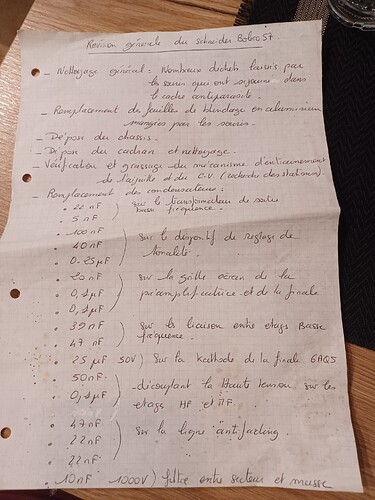 Révision générale du schneider Boléro 57.
- Nettoyage général : Nombreux déchets laissés par
les souris qui ont séjourné dans
cadre antiparasite.
- Remplacement du feuilles de blindage en aluminium
mangées par les souris.
- Dépose du chassis.
- Dépose du cadran et nettoyage.
- Vérification et graissage du mécanisme d'entrainement
de l'aiguille et du C.V (recherche des stations).
- Remplacement de condensateurs :
• 22 nF
• 5 nF
) sur le transformateur de sortie
basse fréquence.
• 100 nF
• 40 nF
• 0.25 µF
) sur le dispositif du reglage de
tonalité.
• 20 nF
• 0,1 µF
• 0,1 µF
) sur la grille écran de la
préamplificatrice et de la finale
• 39 nF
• 47 nF
) sur la liaison entre etages Basse
fréquence.
• 25 µF 50V) sur la kathode de la finale 6AQ5
• 50 nF
• 0,1 µF
) découplant la Haute tension sur les
etages HF et MF.
• 47 nF
• 22 nF
• 22 nF
) sur la ligne antifading.
• 10 nF 1000V) filtre entre secteur et masse